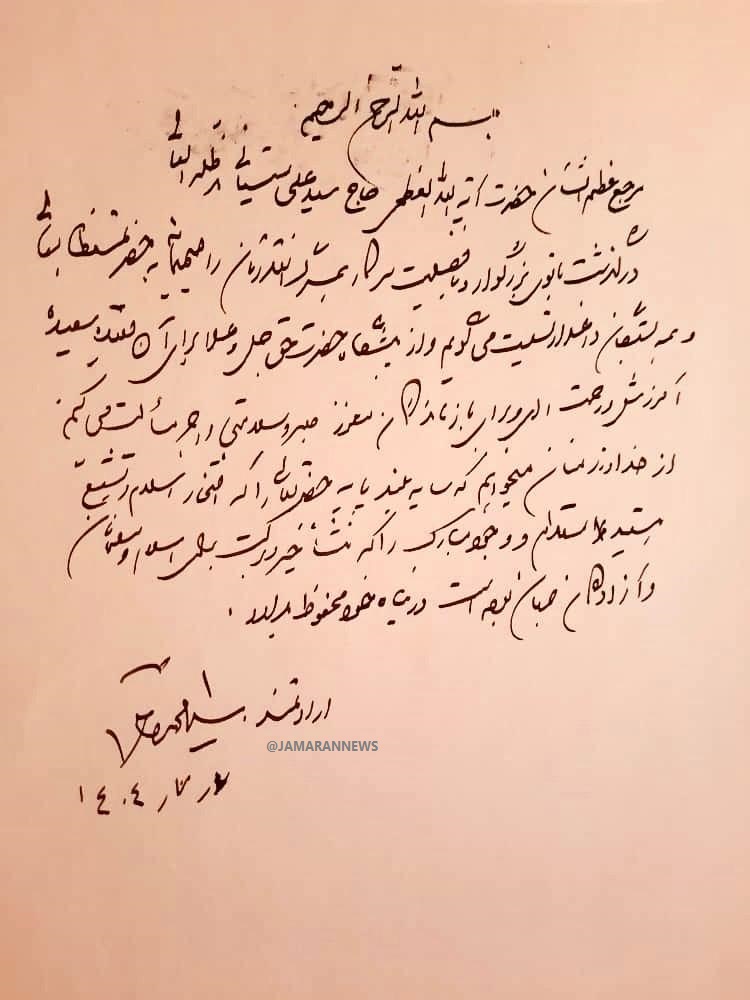 بسم الله الرحمن الرحیم
مرجع عظیم الشأن حضرت آیة الله العظمی حاج سید علی سیستانی مدظله العالی
درگذشت بانوی بزرگوار و با فضیلت سرکار همسر گرانقدرتان را صمیمانه به حضرتعالی
و همه بستگان داغدار تسلیت می گویم و از پیشگاه حضرت حق جل و علا برای آن فقیده سعیده
آمرزش و رحمت الهی و برای بازماندگان معزز صبر و سلامتی و اجر مسألت می کنم
از خداوند منان میخواهم که سایه بلند پایه حضرتعالی را که افتخار اسلام و تشیع
هستید مستدام و وجود مبارک را که منشأ خیر و برکت برای اسلام و مسلمانان
و آزادگان جهان بوده است در پناه خود محفوظ بدارد.
ارادتمند سید محمد خاتمی
@JAMARANNEWS
۱٤۰٤